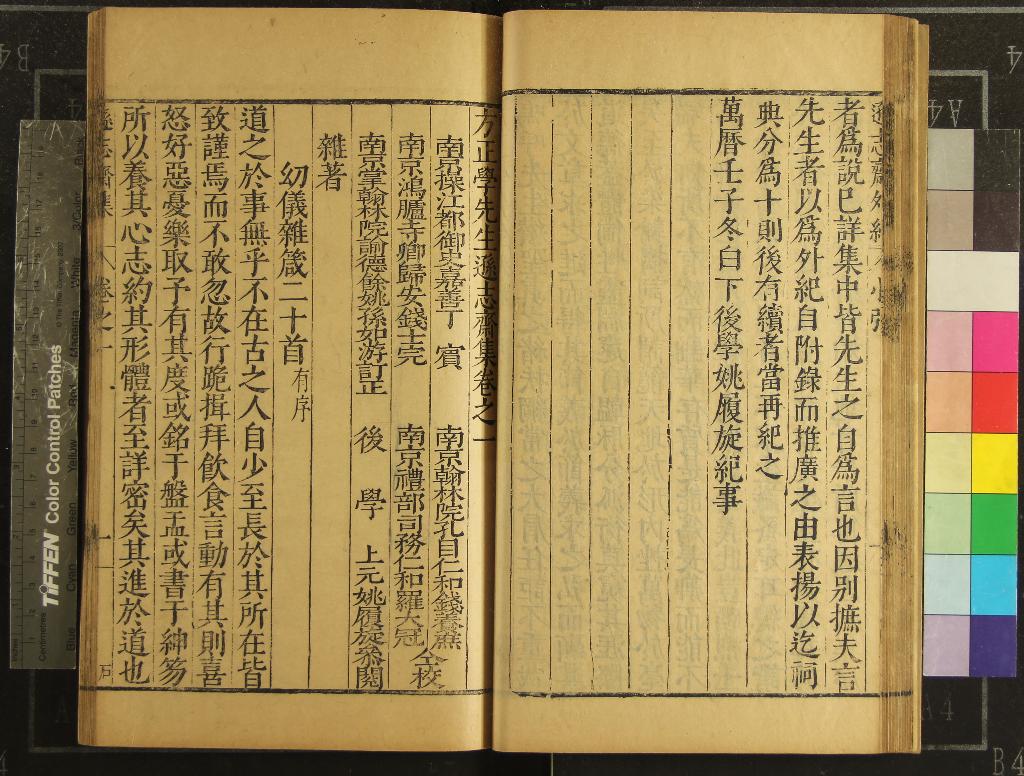 者爲說已詳集中皆先生之自爲言也因别摭夫言
先生者以爲外紀自附錄而推廣之由表揚以迄祠
典分爲十則後有續者當再紀之
萬曆壬子冬白下後學姚履旋紀事
方正學先生遜志齋集卷之一
南京操江都御史嘉善丁賓 南京翰林院孔目仁和錢養㢘
南京鴻臚寺卿歸安錢士完 南京禮部司務仁和羅大冠 仝校
南京掌翰林院諭德餘姚孫如游訂正 後學 上元姚履旋叅閱
雜著
幼儀雜箴二十首有序
道之於事無乎不在古之人自少至長於其所在皆
致謹焉而不敢忽故行跪揖拜飲食言動有其則喜
怒好惡憂樂取予有其度或銘于盤盂或書于紳笏
所以養其心志約其形體者至詳密矣其進於道也
遜志齋集 卷之一 一
TIFFEN Color Control Patches